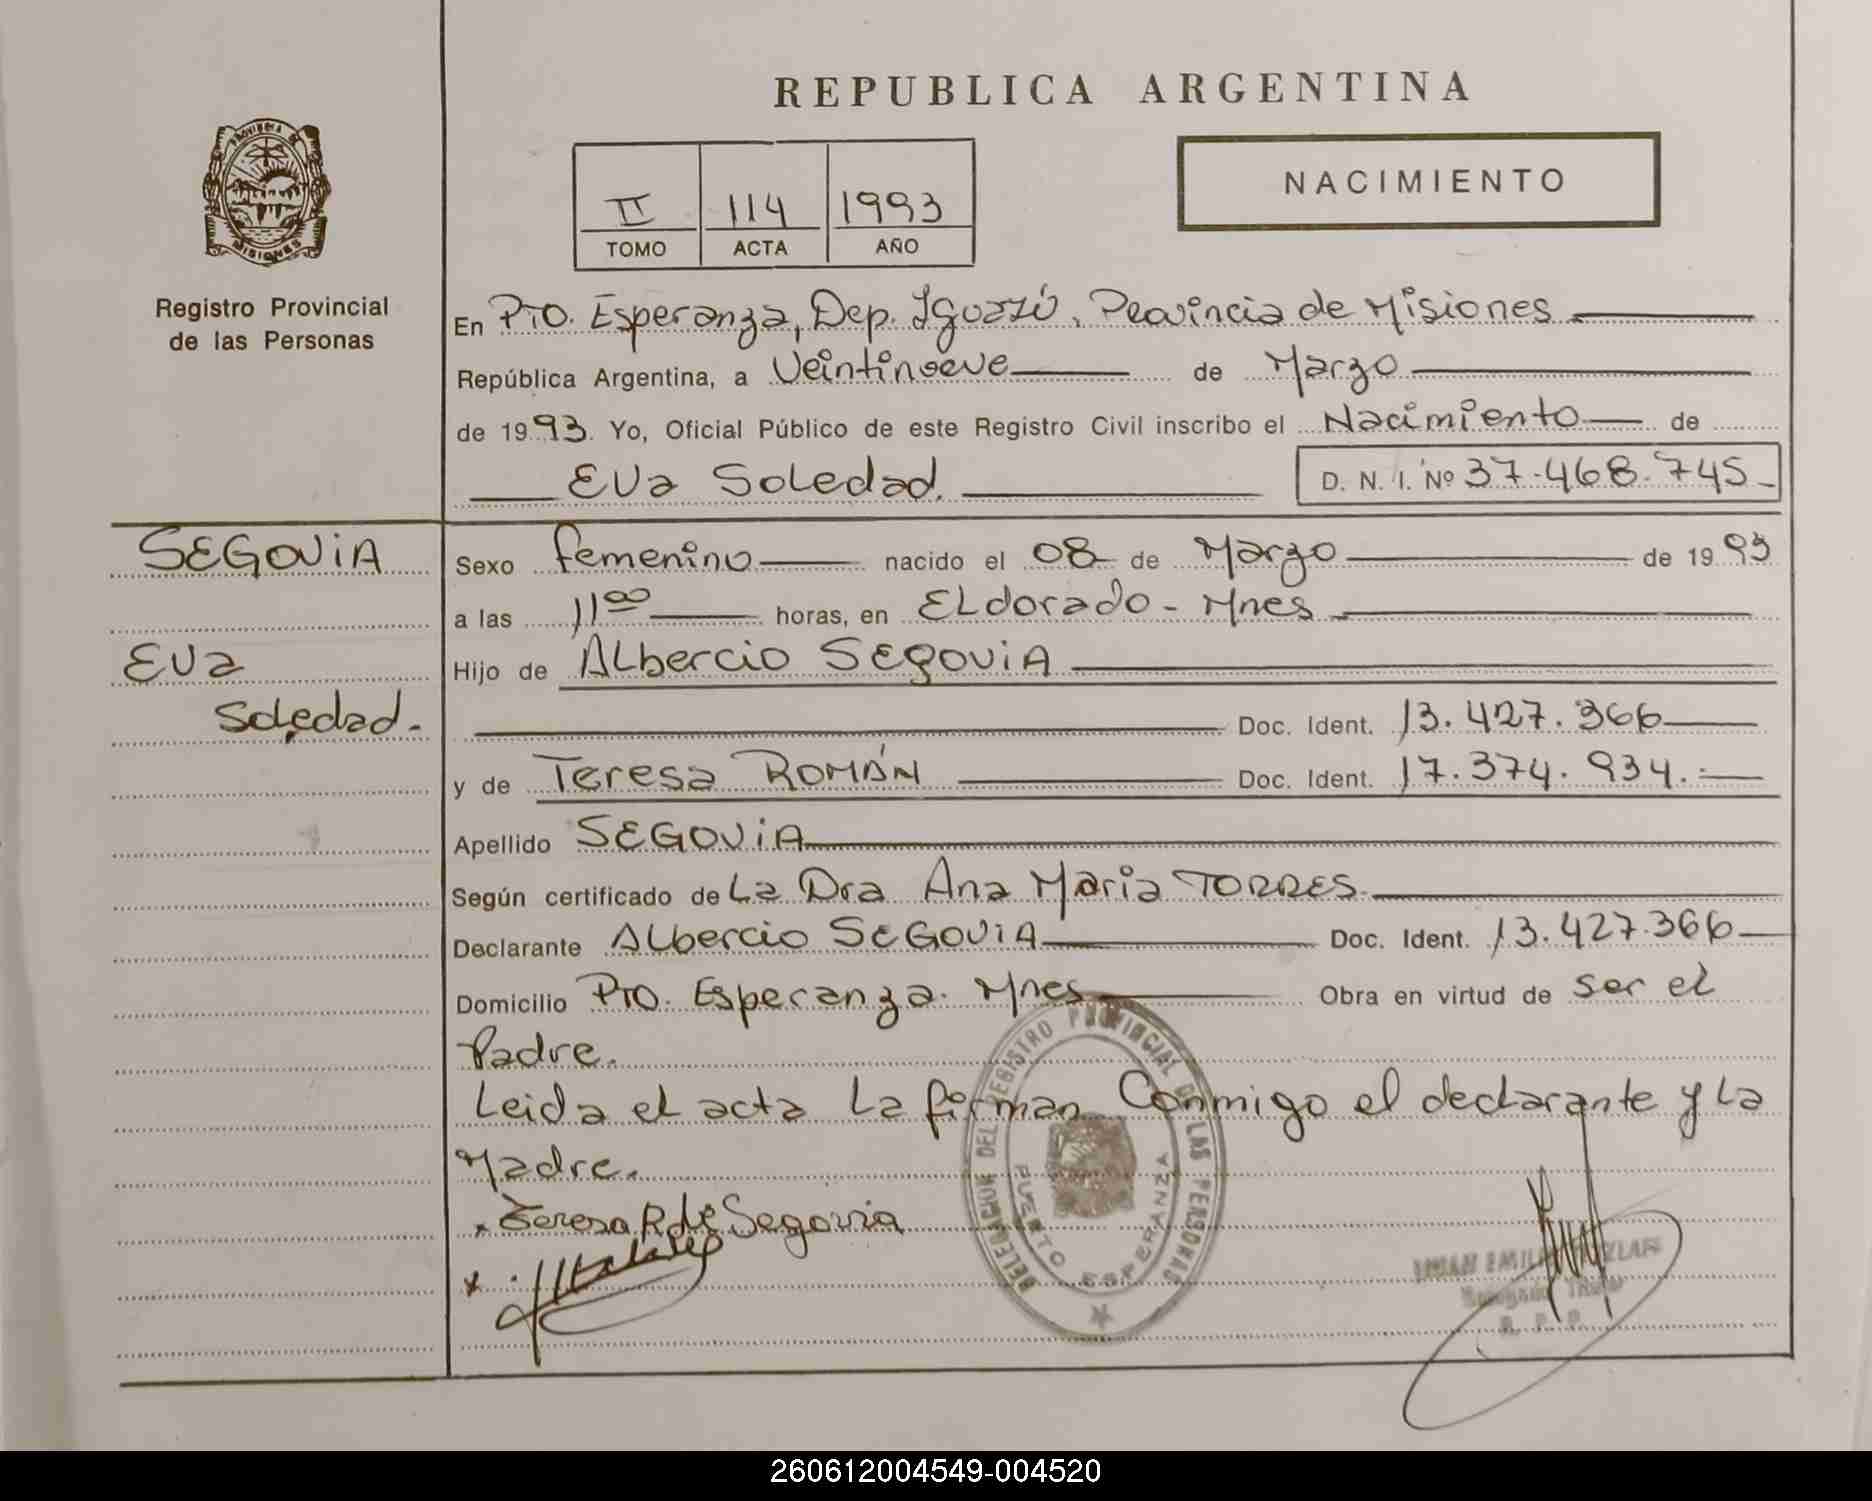 REPUBLICA ARGENTINA
PROVINCIA DE
MISIONES
Registro Provincial
de las Personas
II 114 1993
TOMO ACTA AÑO
NACIMIENTO
En Pto. Esperanza, Dep. Iguazú, Provincia de Misiones
República Argentina, a Veintinueve de Marzo
de 1993. Yo, Oficial Público de este Registro Civil inscribo el Nacimiento de
Eva Soledad. D. N. I. Nº 37.468.745
SEGOVIA
Eva
Soledad.
Sexo femenino nacido el 08 de Marzo de 1993
a las 11 00 horas, en ELdorado - Mnes
Hijo de ALbercio SEGOVIA
Doc. Ident. 13.427.366
y de Teresa ROMÁN Doc. Ident. 17.374.934.
Apellido SEGOVIA
Según certificado de La Dra Ana Maria TORRES
Declarante ALbercio SEGOVIA Doc. Ident. 13.427.366
Domicilio Pto. Esperanza. Mnes Obra en virtud de ser el
Padre.
Leida el acta La firman Conmigo el declarante y La
Madre.
Teresa R de Segovia
DELEGACION DEL REGISTRO PROVINCIAL DE LAS PERSONAS
PUERTO ESPERANZA
R. P. P.
260612004549-004520